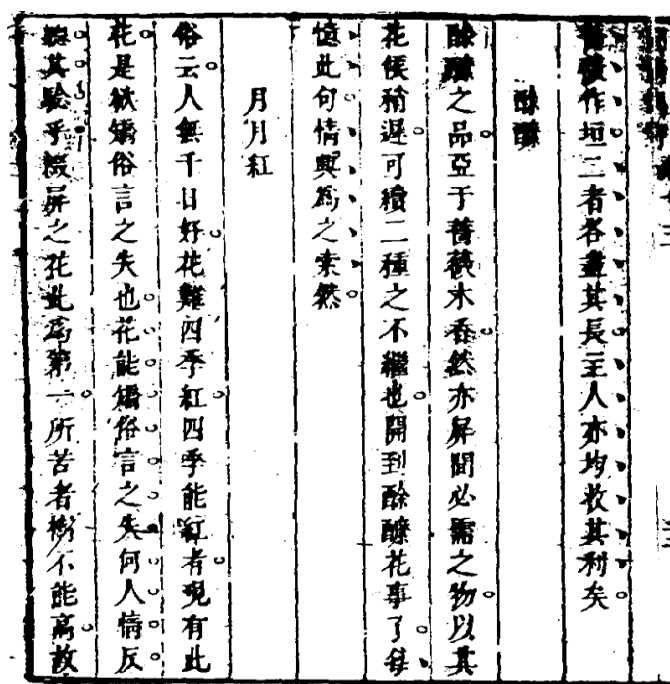 薔薇作垣二者各盡其長主人亦均收其利矣
酴醾
酴醾之品亞于薔薇木香然亦屏間必需之物以其
花候稍遲可續二種之不繼也開到酴醾花事了每
憶此句情興為之索然
月月紅
俗云人無千日好花難四季紅四季能紅者現有此
花是欲矯俗言之失也花能矯俗言之失何人情反
聽其驗乎綴屏之花此為第一所苦者樹不能高故